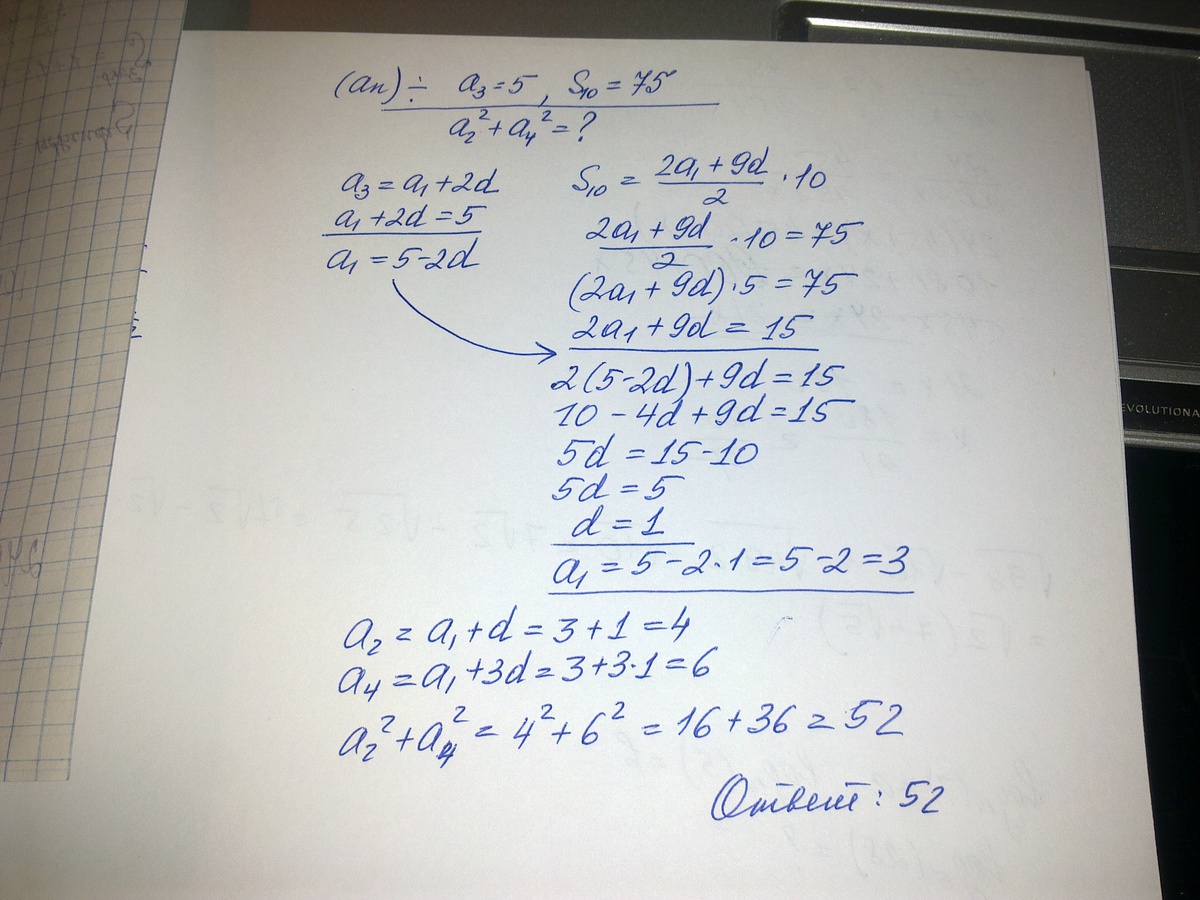 (an) ÷ a₃ = 5, S₁₀ = 75
a₂² + a₄² = ?
a₃ = a₁ + 2d
a₁ + 2d = 5
a₁ = 5 - 2d
S₁₀ = (2a₁ + 9d)/2 · 10
(2a₁ + 9d)/2 · 10 = 75
(2a₁ + 9d) · 5 = 75
2a₁ + 9d = 15
2(5 - 2d) + 9d = 15
10 - 4d + 9d = 15
5d = 15 - 10
5d = 5
d = 1
a₁ = 5 - 2 · 1 = 5 - 2 = 3
a₂ = a₁ + d = 3 + 1 = 4
a₄ = a₁ + 3d = 3 + 3 · 1 = 6
a₂² + a₄² = 4² + 6² = 16 + 36 = 52
Ответ: 52
EVOLUTIONA